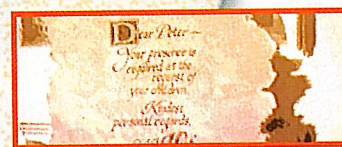 Dear Peter —
Your presence is
required at the
request of
your children.
Kindest
personal regards,